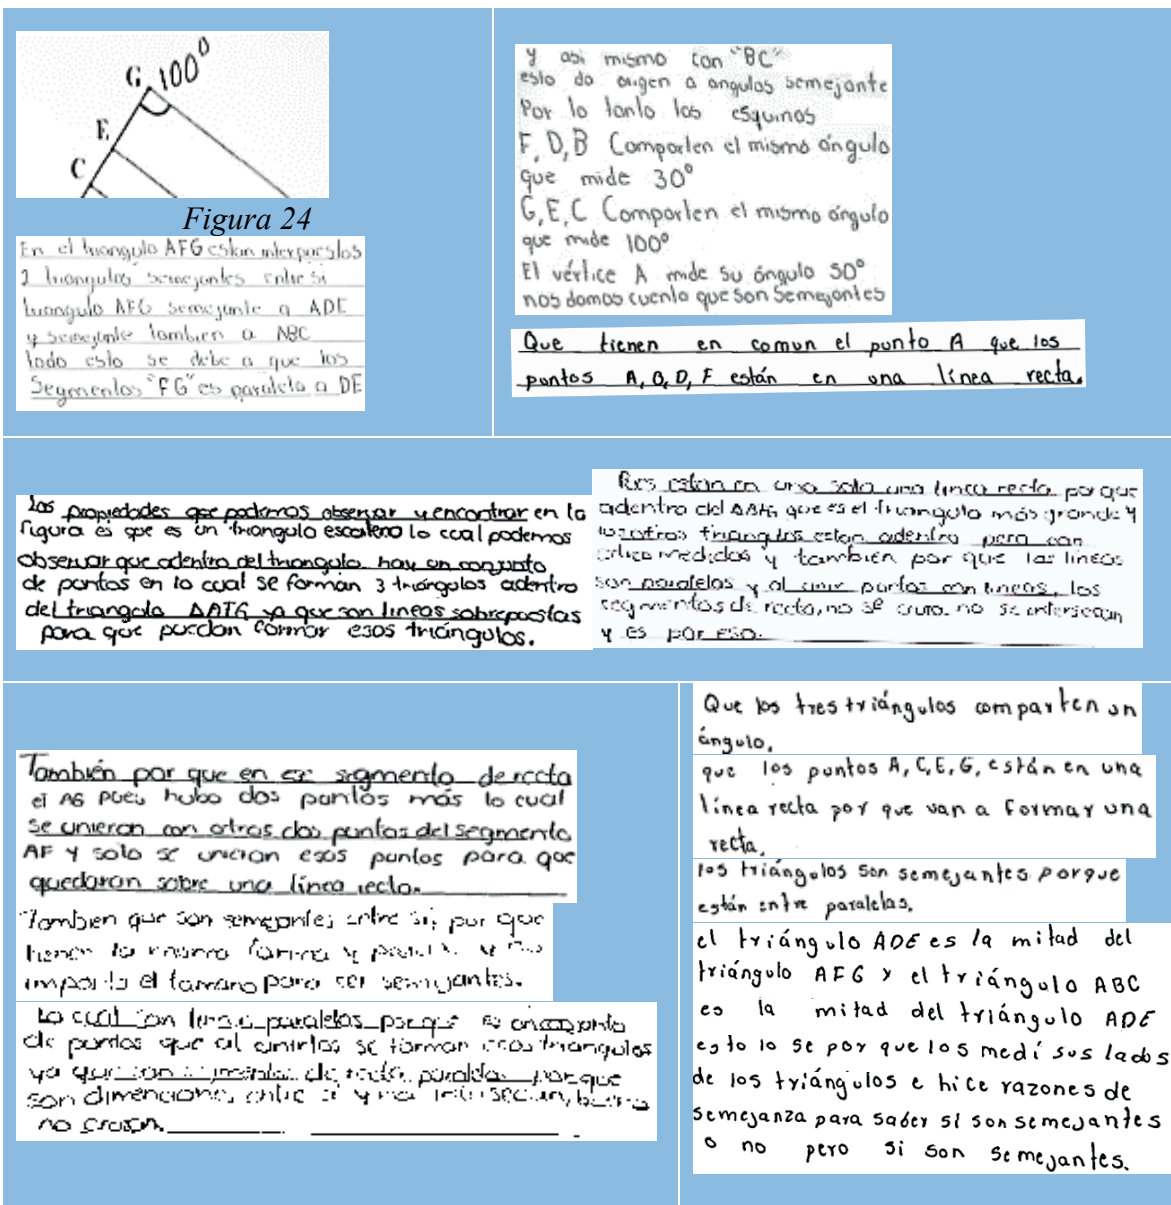 G 100°
E
C
Figura 24
En el triangulo AFG estan interpuestos
2 triangulos semejantes entre si
triangulo AFG semejante a ADE
y semejante tambien a ABC
todo esto se debe a que los
Segmentos "FG" es paralela a DE
y asi mismo con "BC"
esto da origen a angulos semejante
Por lo tanto las esquinas
F, D, B Comparten el mismo ángulo
que mide 30°
G, E, C Comparten el mismo ángulo
que mide 100°
El vértice A mide su ángulo 50°
nos damos cuenta que son Semejantes
Que tienen en comun el punto A que los
puntos A, B, D, F están en una línea recta.
Las propiedades que podemos observar y encontrar en la
figura es que es un triangulo escaleno lo cual podemos
observar que adentro del triangulo hay un conjunto
de puntos en lo cual se forman 3 triángulos adentro
del triangulo ya que son lineas sobrepuestas
para que puedan formar esos triángulos.
Pues estan en una sola una linea recta porque
adentro del que es el triangulo más grande y
los otros triangulos estan adentro pero con
medidas y también por que las lineas
son paralelas y al unir puntos con lineas, los
segmentos de recta, no se cruza, no se intersecan
y es por eso.
También por que en segmento de recta
el AG pues hubo dos puntos más lo cual
se unieron con otros dos puntos del segmento
AF y solo se unieron esos puntos para que
quedaran sobre una línea recta.
Tambien que son semejantes entre si, por que
tienen la misma forma y y no
importa el tamaño para ser semejantes.
Lo cual son paralelas porque es un conjunto
de puntos que al unirlos se forman esos triangulos
ya que son segmentos de recta paralelas porque
son dimensiones entre si y no intersecan, bueno
no cruzan.
Que los tres triángulos comparten un
ángulo.
que los puntos A, C, E, G, están en una
línea recta por que van a formar una
recta.
los triángulos son semejantes porque
están entre paralelas.
el triángulo ADE es la mitad del
triángulo AFG y el triángulo ABC
es la mitad del triángulo ADE
esto lo se por que los medí sus lados
de los triángulos e hice razones de
semejanza para saber si son semejantes
o no pero si son semejantes.